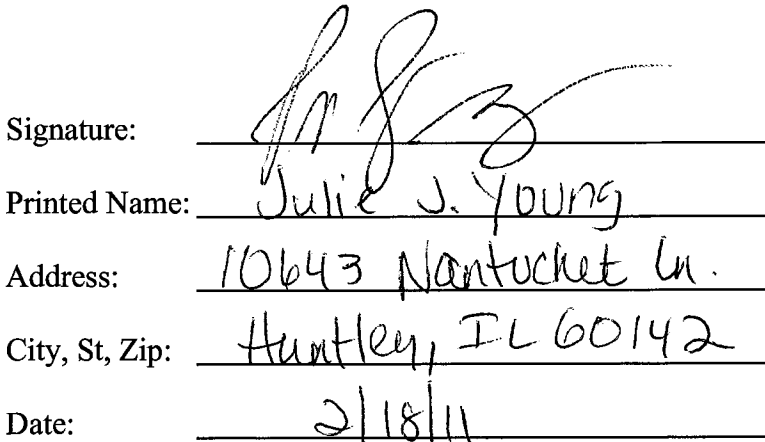 Signature:
Printed Name: Julie J. Young
Address: 10643 Nantucket Ln.
City, St, Zip: Huntley, IL 60142
Date: 2/18/11